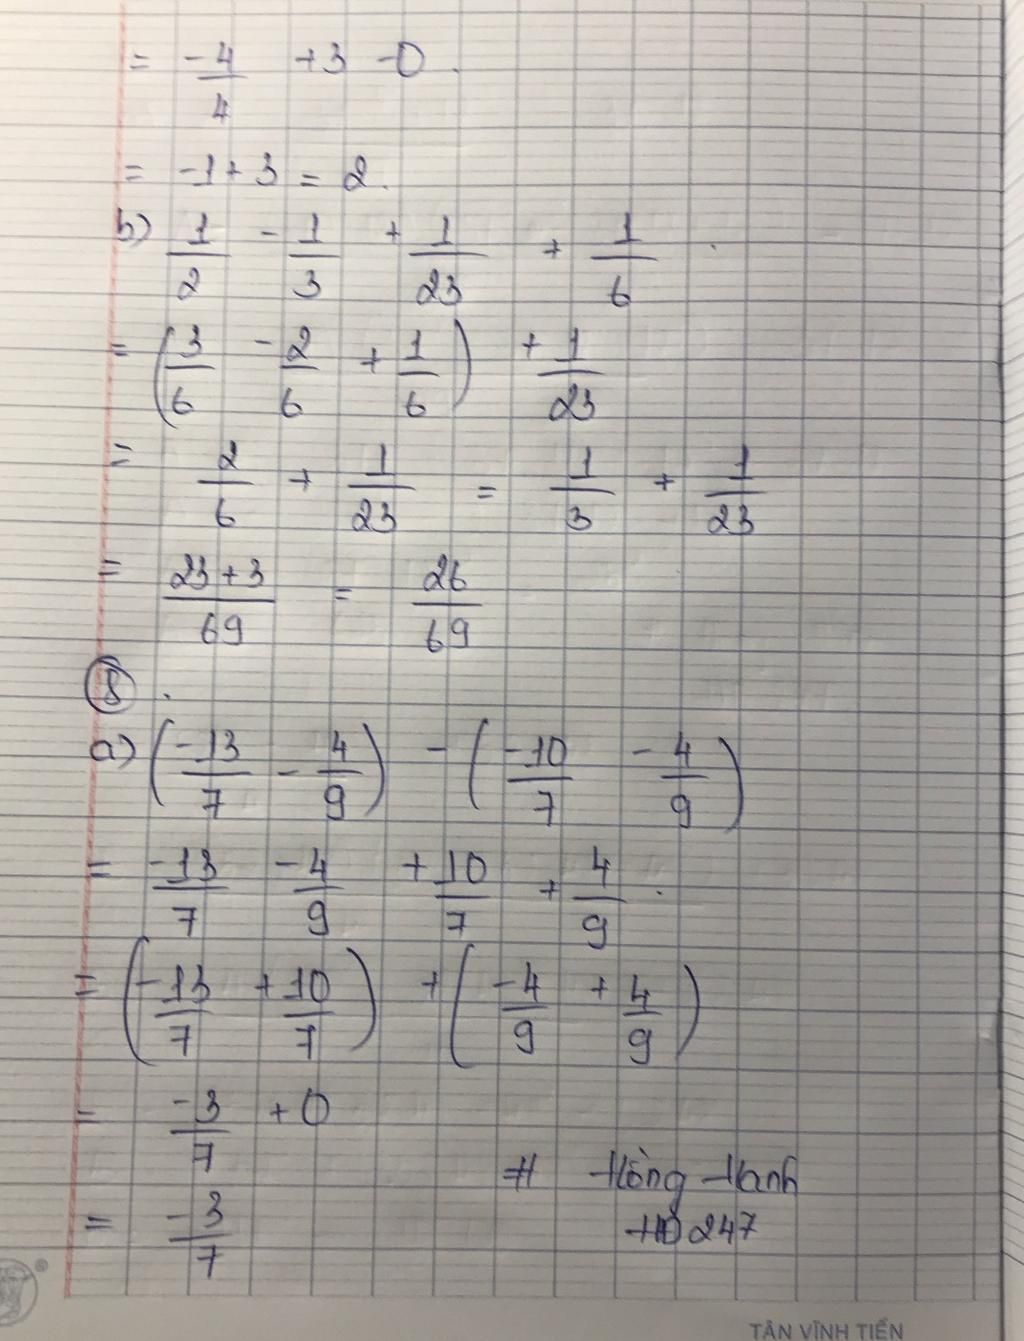 = -4/4 +3 -0.
= -1 + 3 = 2.
b) 1/2 - 1/3 + 1/23 + 1/6
= (3/6 - 2/6 + 1/6) + 1/23
= 2/6 + 1/23 = 1/3 + 1/23
= (23+3)/69 = 26/69
8.
a) (-13/7 - 4/9) - (-10/7 - 4/9)
= -13/7 - 4/9 + 10/7 + 4/9.
= (-13/7 + 10/7) + (-4/9 + 4/9)
= -3/7 + 0
# Hồng Hanh
= -3/7
HĐ 247
TÂN VĨNH TIẾN